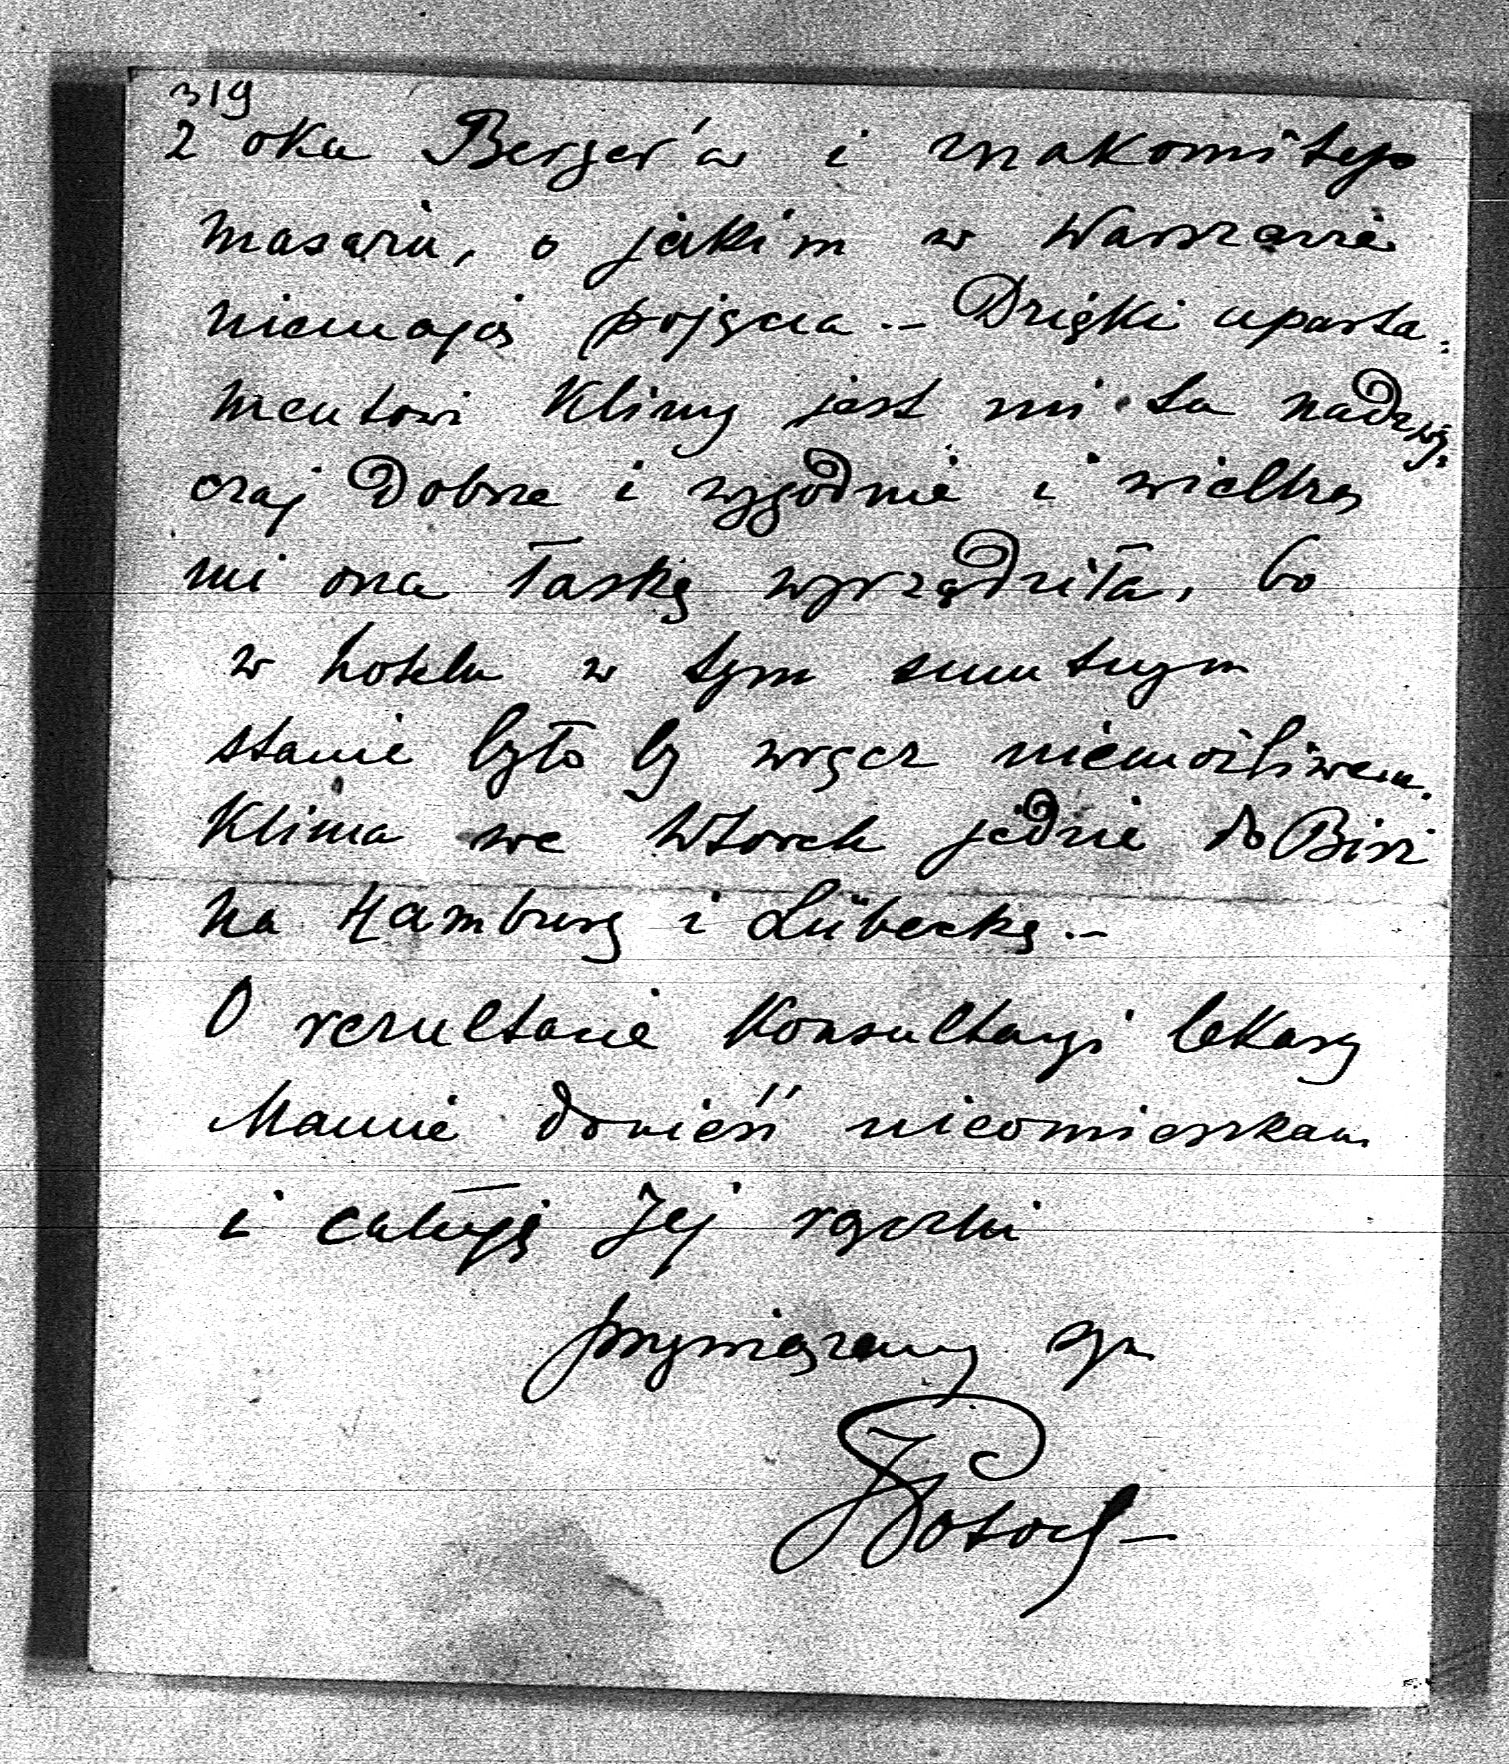 319
2 oka Berger'a i znakomitego
masażu, o jakim w Warszawie
niemają pojęcia.– Dzięki aparta:
mentowi Klimy jest mi tu nadzwy:
czaj dobrze i wygodnie i wielką
mi ona łaskę wyrządziła, bo
w hotelu w tym smutnym
stanie było by wręcz niemożliwem.
Klima we Wtorek jedzie do Birż
na Hamburg i Lübeckę.–
O rezultacie Konsultacyi lekarzy
Mamie donieść nieomieszkam
i całuję Jej rączki
przywiązany syn
JPotocki